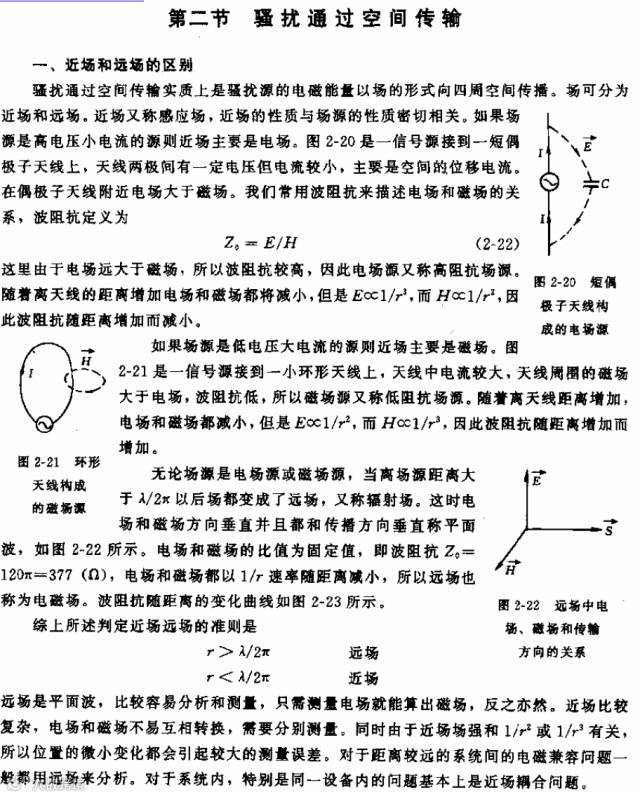 第二节 骚扰通过空间传输
一、近场和远场的区别
骚扰通过空间传输实质上是骚扰源的电磁能量以场的形式向四周空间传播。场可分为
近场和远场。近场又称感应场，近场的性质与场源的性质密切相关。如果场
源是高电压小电流的源则近场主要是电场。图 2-20 是一信号源接到一短偶
极子天线上，天线两极间有一定电压但电流较小，主要是空间的位移电流。
在偶极子天线附近电场大于磁场。我们常用波阻抗来描述电场和磁场的关
系，波阻抗定义为
Z₀ = E/H (2-22)
这里由于电场远大于磁场，所以波阻抗较高，因此电场源又称高阻抗场源。
随着离天线的距离增加电场和磁场都将减小，但是 E∝1/r³，而 H∝1/r²，因
此波阻抗随距离增加而减小。
I
E
C
I
图 2-20 短偶
极子天线构
成的电场源
如果场源是低电压大电流的源则近场主要是磁场。图
2-21 是一信号源接到一小环形天线上，天线中电流较大，天线周围的磁场
大于电场，波阻抗低，所以磁场源又称低阻抗场源。随着离天线距离增加，
电场和磁场都减小，但是 E∝1/r²，而 H∝1/r³，因此波阻抗随距离增加而
增加。
I
H
图 2-21 环形
天线构成
的磁场源
无论场源是电场源或磁场源，当离场源距离大
于 λ/2π 以后场都变成了远场，又称辐射场。这时电
场和磁场方向垂直并且都和传播方向垂直称平面
波，如图 2-22 所示。电场和磁场的比值为固定值，即波阻抗 Z₀=
120π=377（Ω），电场和磁场都以 1/r 速率随距离减小，所以远场也
称为电磁场。波阻抗随距离的变化曲线如图 2-23 所示。
E
S
H
图 2-22 远场中电
场、磁场和传输
方向的关系
综上所述判定近场远场的准则是
r > λ/2π 远场
r < λ/2π 近场
远场是平面波，比较容易分析和测量，只需测量电场就能算出磁场，反之亦然。近场比较
复杂，电场和磁场不易互相转换，需要分别测量。同时由于近场场强和 1/r² 或 1/r³ 有关，
所以位置的微小变化都会引起较大的测量误差。对于距离较远的系统间的电磁兼容问题一
般都用远场来分析。对于系统内，特别是同一设备内的问题基本上是近场耦合问题。